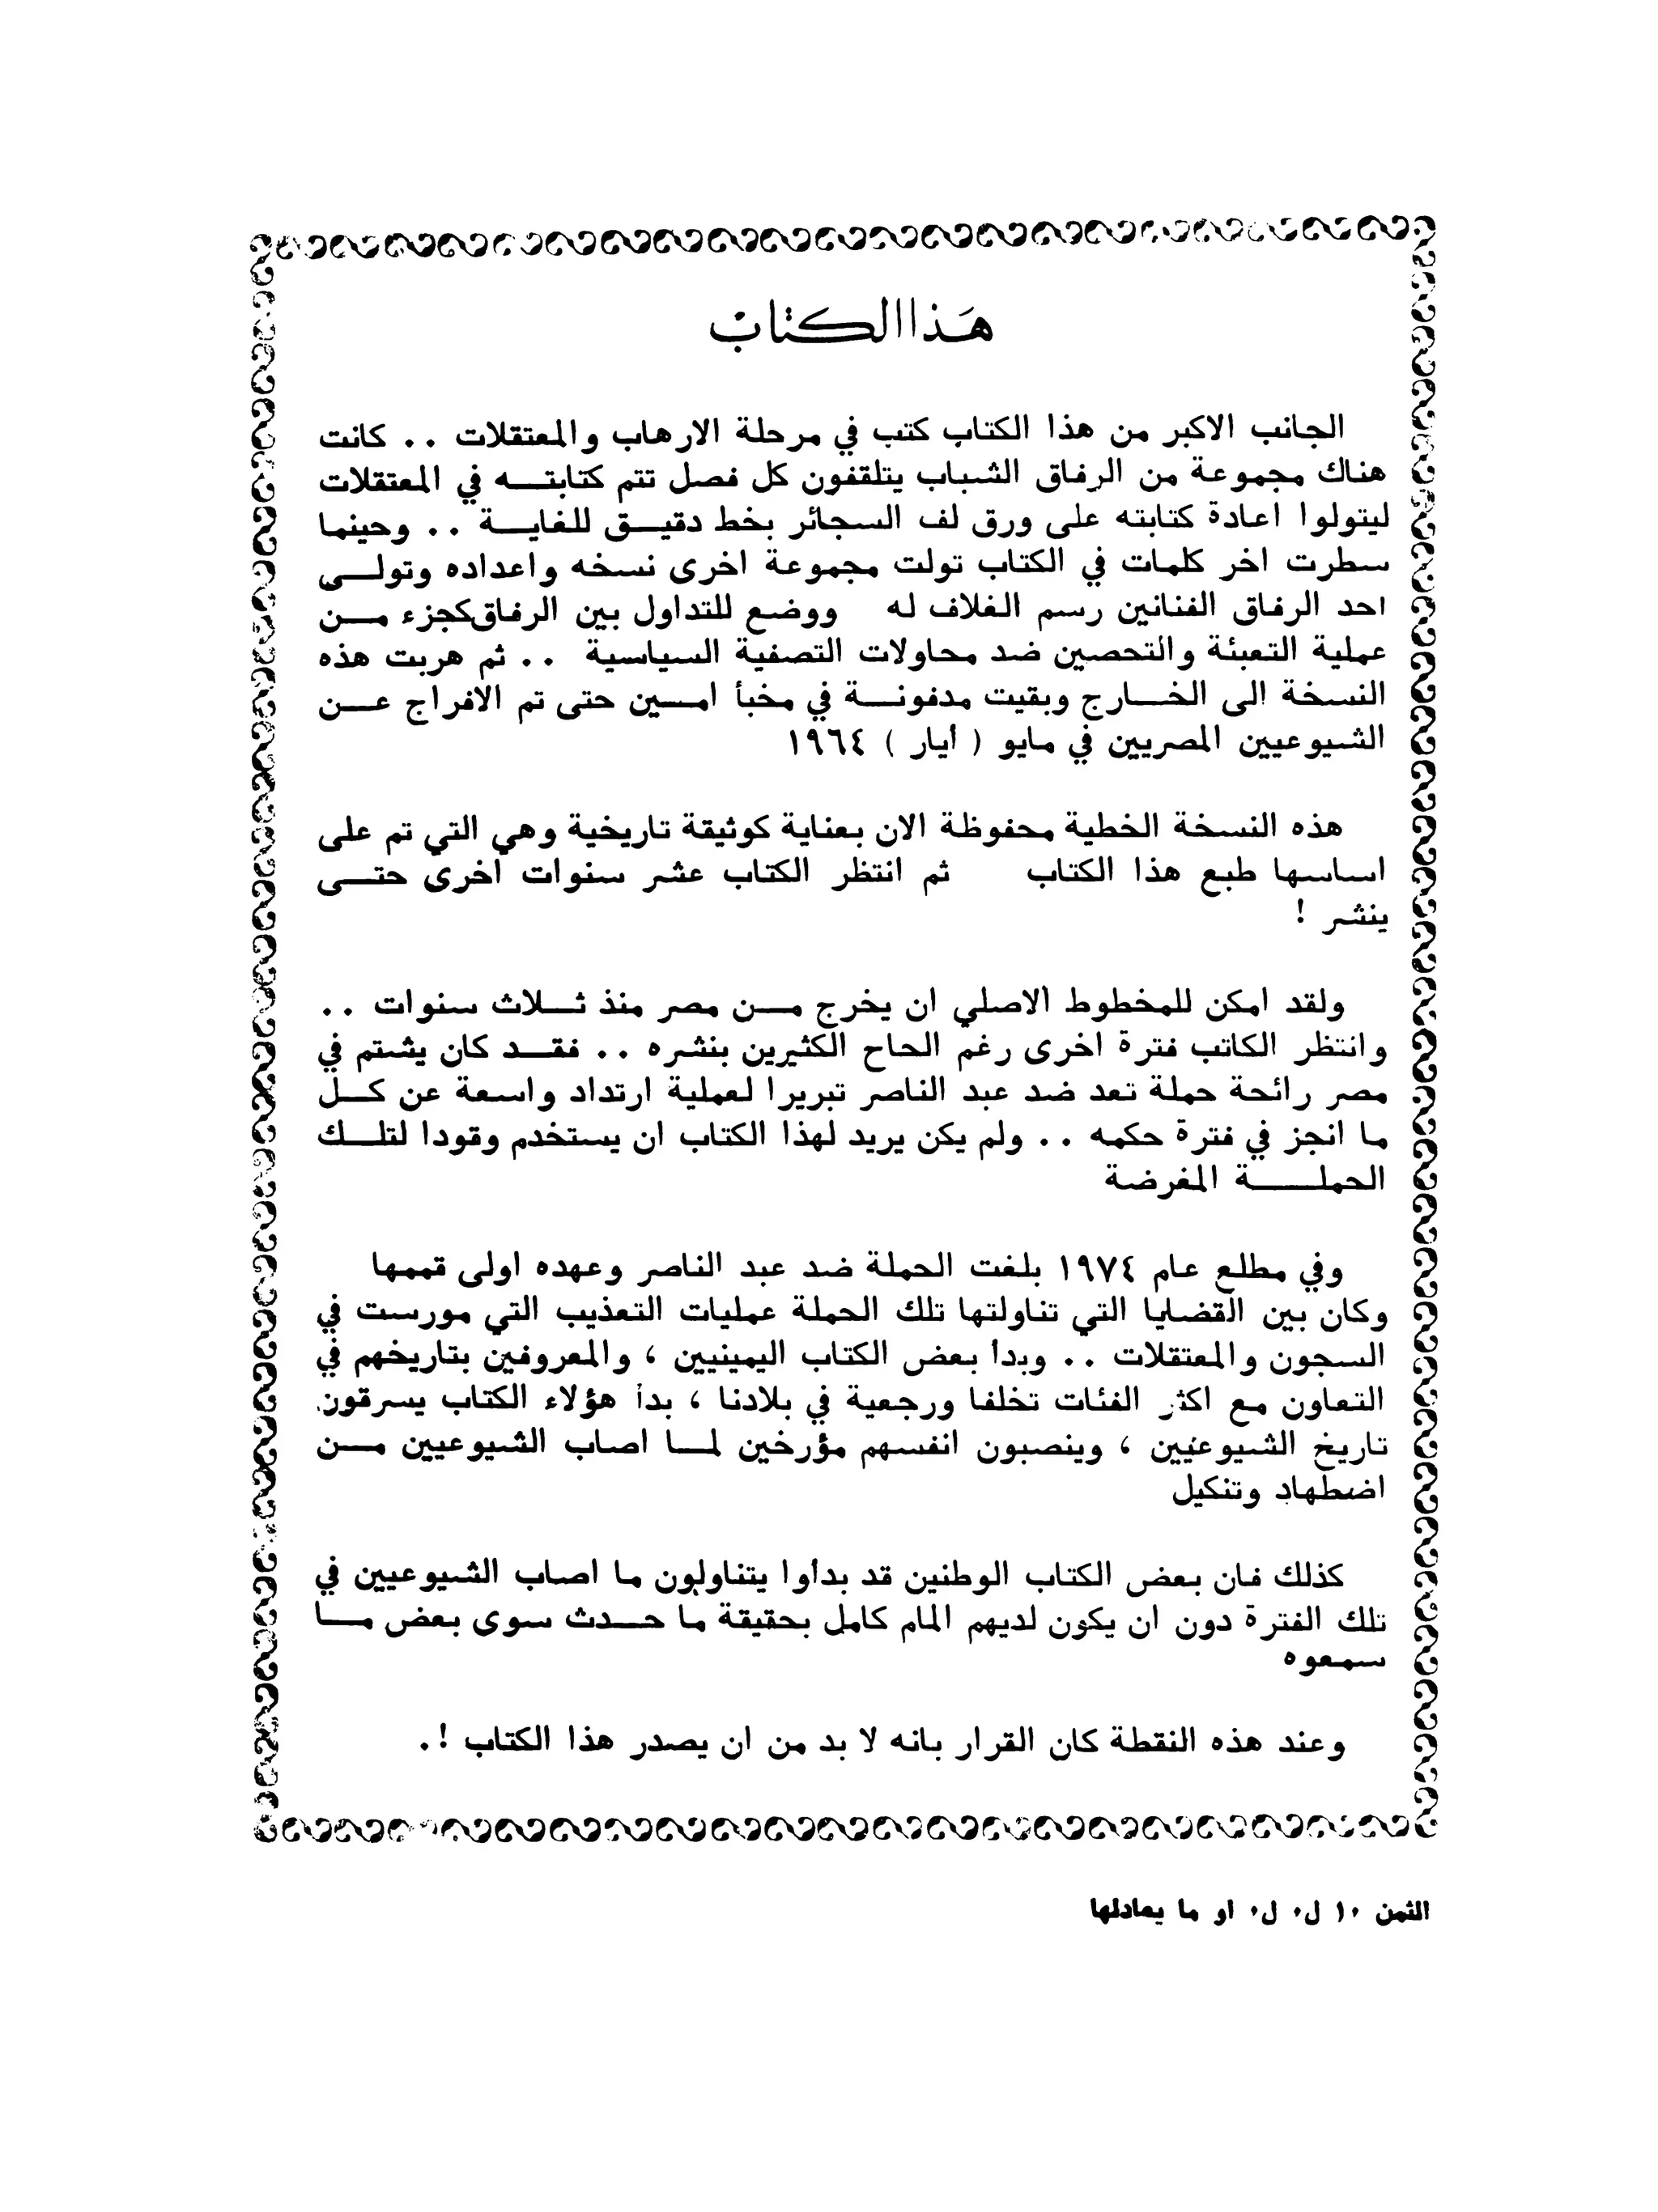 هذا الكتاب
الجانب الاكبر من هذا الكتاب كتب في مرحلة الارهاب والمعتقلات .. كانت
هناك مجموعة من الرفاق الشباب يتلقفون كل فصل تتم كتابته في المعتقلات
ليتولوا اعادة كتابته على ورق لف السجائر بخط دقيق للغاية .. وحينما
سطرت اخر كلمات في الكتاب تولت مجموعة اخرى نسخه واعداده وتولى
احد الرفاق الفنانين رسم الغلاف له ووضع للتداول بين الرفاق كجزء من
عملية التعبئة والتحصين ضد محاولات التصفية السياسية .. ثم هربت هذه
النسخة الى الخارج وبقيت مدفونة في مخبأ امين حتى تم الافراج عن
الشيوعيين المصريين في مايو ( أيار ) ١٩٦٤
هذه النسخة الخطية محفوظة الان بعناية كوثيقة تاريخية وهي التي تم على
اساسها طبع هذا الكتاب ثم انتظر الكتاب عشر سنوات اخرى حتى
ينشر !
ولقد امكن للمخطوط الاصلي ان يخرج من مصر منذ ثلاث سنوات ..
وانتظر الكاتب فترة اخرى رغم الحاح الكثيرين بنشره .. فقد كان يشتم في
مصر رائحة حملة تعد ضد عبد الناصر تبريرا لعملية ارتداد واسعة عن كل
ما انجز في فترة حكمه .. ولم يكن يريد لهذا الكتاب ان يستخدم وقودا لتلك
الحملة المغرضة
وفي مطلع عام ١٩٧٤ بلغت الحملة ضد عبد الناصر وعهده اولى قممها
وكان بين القضايا التي تناولتها تلك الحملة عمليات التعذيب التي مورست في
السجون والمعتقلات .. وبدا بعض الكتاب اليمينيين ، والمعروفين بتاريخهم في
التعاون مع اكثر الفئات تخلفا ورجعية في بلادنا ، بدأ هؤلاء الكتاب يسرقون
تاريخ الشيوعيين ، وينصبون انفسهم مؤرخين لما اصاب الشيوعيين من
اضطهاد وتنكيل
كذلك فان بعض الكتاب الوطنين قد بداوا يتناولون ما اصاب الشيوعيين في
تلك الفترة دون ان يكون لديهم المام كامل بحقيقة ما حدث سوى بعض ما
سمعوه
وعند هذه النقطة كان القرار بانه لا بد من ان يصدر هذا الكتاب !.
الثمن ١٠ ل٠ ل٠ او ما يعادلها